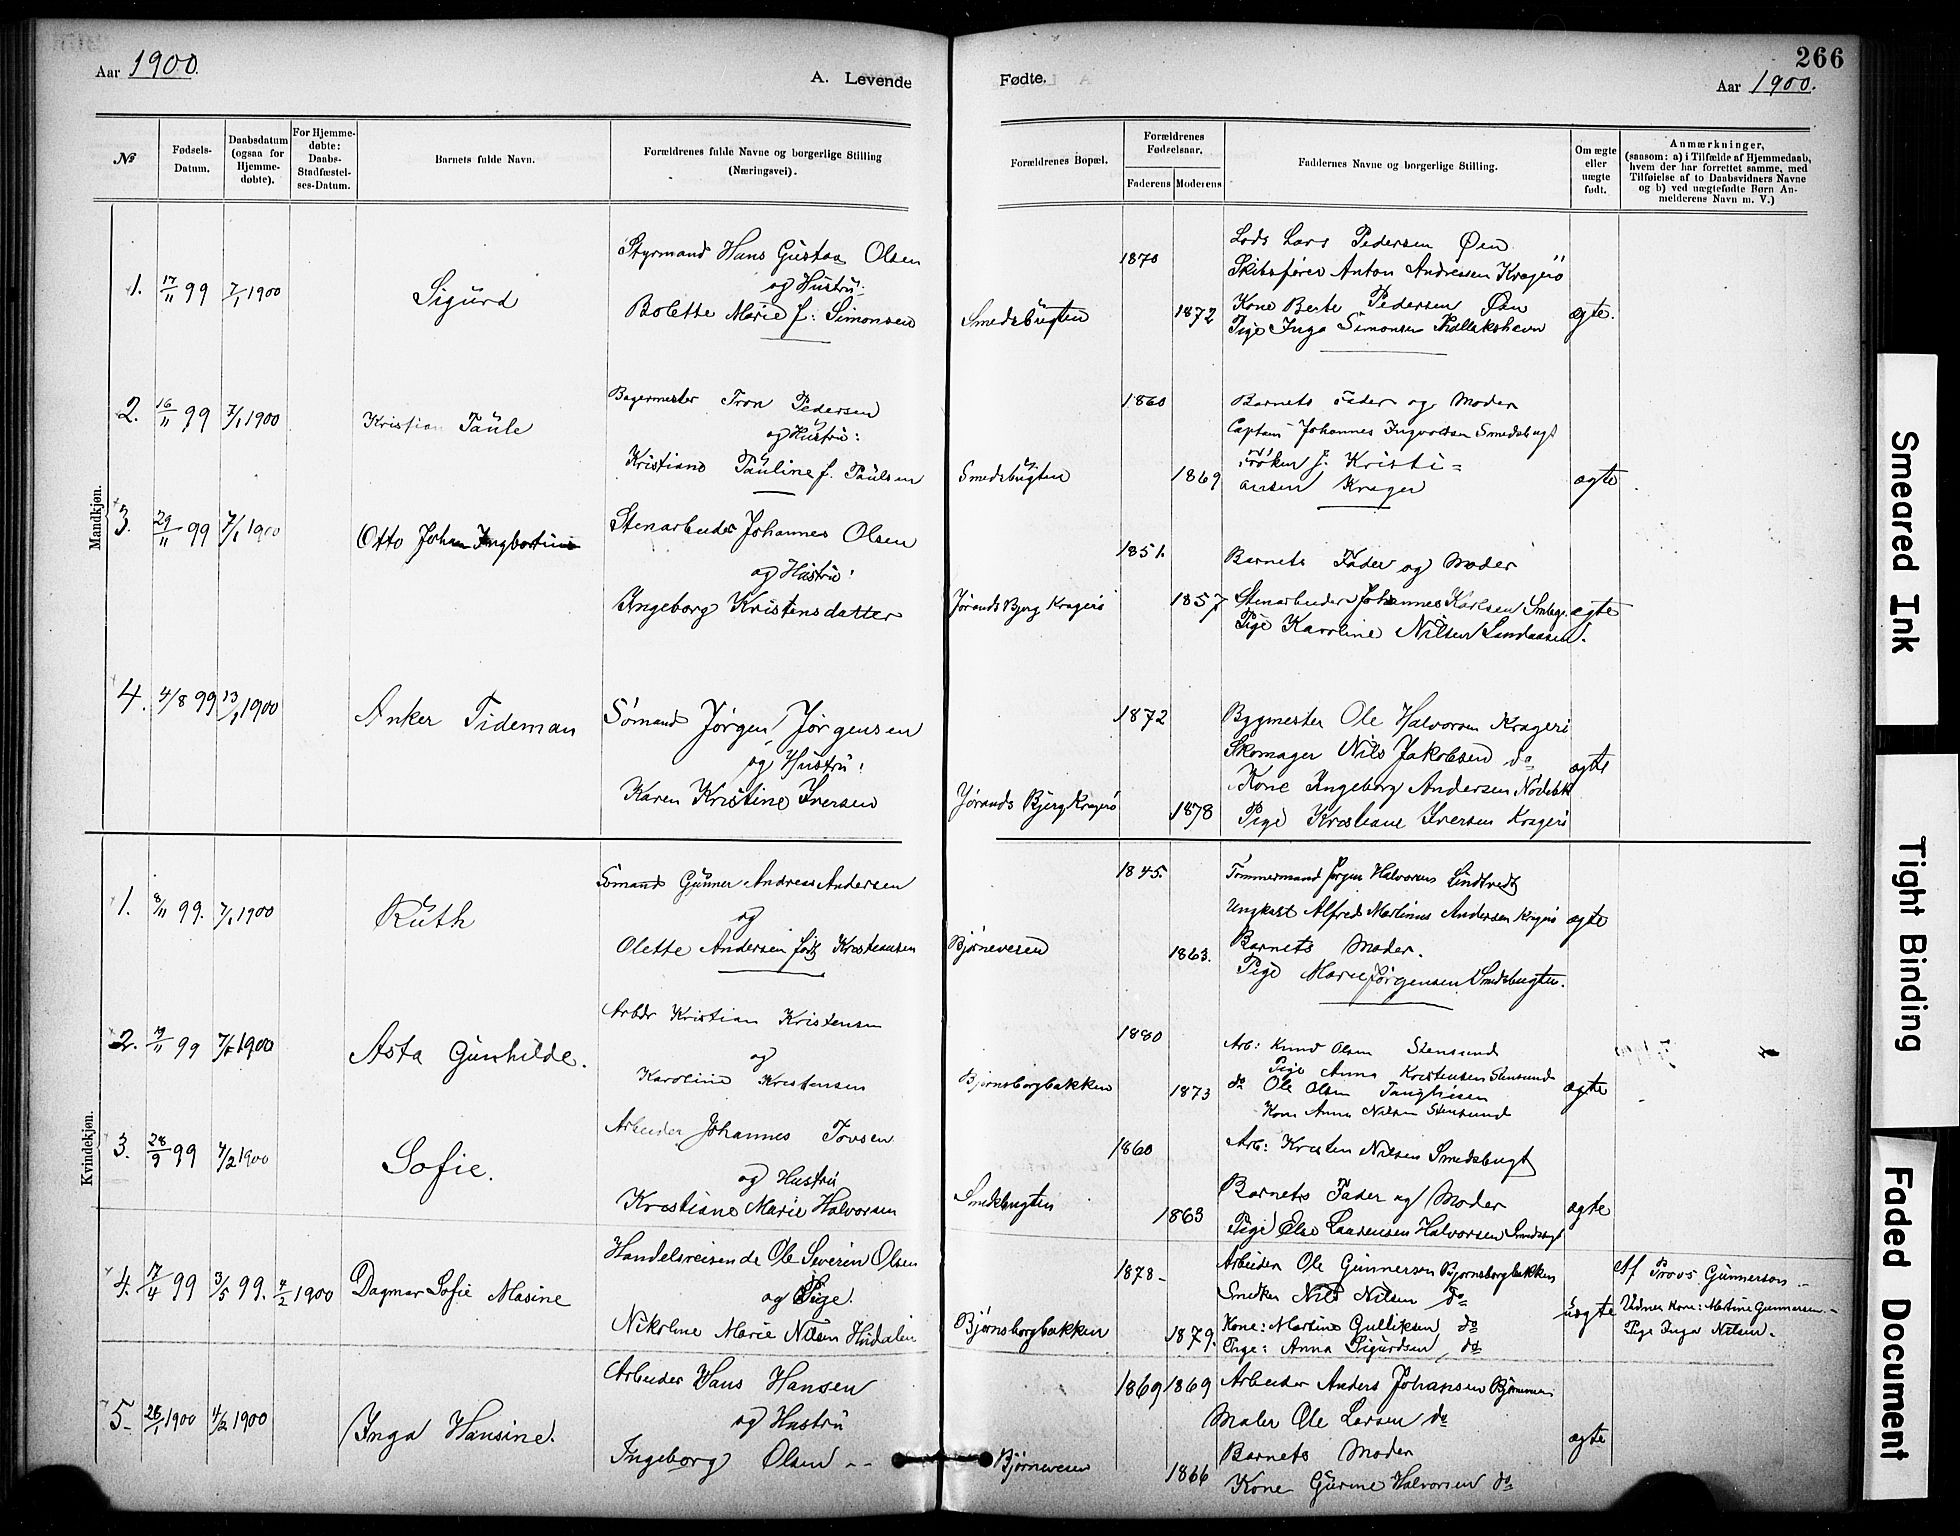 Aar 1900.
A. Levende
Fødte.
266
Aar 1900.
No
Fødsels-
Datum.
Daabsdatum
(ogsaa for
Hjemme-
døbte).
For Hjemme-
døbte:
Daabs-
Stadfæstel-
ses-Datum.
Barnets fulde Navn.
Forældrenes fulde Navne og borgerlige Stilling
(Næringsvei).
Forældrenes Bopæl.
Forældrenes
Fødselsaar.
Faderens
Moderens
Faddernes Navne og borgerlige Stilling.
Om ægte
eller
uægte
født.
Anmærkninger,
(saasom: a) i Tilfælde af Hjemmedaab,
hvem der har forrettet samme, med
Tilføielse af to Daabsvidners Navne
og b) ved uægtefødte Børn An-
melderens Navn m. V.)
Mandkjøn.
1. 17/11 99 7/1 1900 Sigurd
Styrmand Hans Gustav Olsen
og Hustru:
Bolette Marie f: Simonsen
Smedsbugten
1870
1872
Lods Lars Pedersen Øen
Skibsfører Anton Andresen Kragerö
Kone Berte Pedersen Øen
Pige Inga Simonsen
ægte.
2. 16/11 99 7/1 1900 Kristian Paule
Bagermester Tron Pedersen
og Hustru:
Kristiane Pauline f. Paulsen
Smedsbugten
1860
1869
Barnets Fader og Moder
Captain Johannes Ingvoldsen Smedsbugt
Frøken J. Kristi=
ansen Krager
ægte
3. 29/11 99 7/1 1900 Otto Johan
Stenarbeider Johannes Olsen
og Hustru:
Ingeborg Kristensdatter
Jørands Bjerg Kragerö
1851.
1857
Barnets Fader og Moder
Stenarbeider Johannes Karlsen
Pige Karoline Nilsen Sandaasen.
ægte
4. 4/8 99 13/1 1900 Anker Tideman
Sømand Jørgen Jørgensen
og Hustru:
Karen Kristine Iversen
Jørands Bjerg Kragerö
1872
1878
Bygmester Ole Halvorsen Kragerö
Skomager Nils Jakobsen do
Kone Ingeborg Andersen
Pige Kristiane Iversen Kragerö
ægte
Kvindekjøn.
1. 8/11 99. 7/1 1900 Ruth
Sømand Gunner Andreas Andersen
og
Olette Andersen født Kristiansen
Bjørnevesen
1845.
1863.
Tømmermand Jørgen Halvorsen Lindtvedt
Ungkarl Alfred Martinus Andersen Kragerö
Barnets Moder.
Pige Marie Jørgensen Smedsbugten.
ægte
2. 19/11 99 7/1 1900 Asta Gunhilde.
Arbdr Kristian Kristensen
og
Karoline Kristensen
Bjørnsborgbakken
1880
1873
Arb: Knud Olsen Stensund
Pige Anna Kristensen Stensund
do Ole Olsen
Kone Anna Nilsen Stensund
ægte
3. 28/9 99 4/2 1900 Sofie.
Arbeider Johannes Tovsen
og Hustru
Kristiane Marie Halvorsen
Smedsbugten
1860
1863
Arb: Kristen Nilsen Smedsbugt
Barnets Fader og Moder
Pige Else Laurensen Halvorsen Smedsbugt
ægte
4. 7/4 99 3/5 99. 4/2 1900 Dagmar Sofie Masine
Handelsreisende Ole Severin Olsen
og Pige.
Nikoline Marie Nilsen
Bjørnsborgbakken
1878
1879.
Arbeider Ole Gunnersen Bjørnsborgbakken
Snedker Nils Nilsen do
Kone: Martine Gulliksen do
Pige: Anna Sigurdsen, do
uægte
Af Provs Gunnerson
Vidner Kone: Martine Gunnersen.
Pige Inga Nilsen.
5. 26/1 1900 4/2 1900 Inga Hansine.
Arbeider Hans Hansen
og Hustru
Ingeborg Olsen
Bjørnevesen
1869 1869
1866
Arbeider Anders Johansen
Maler Ole Larsen do
Barnets Moder
Kone Gurine Halvorsen do
ægte
Smeared Ink
Tight Binding
Faded Document